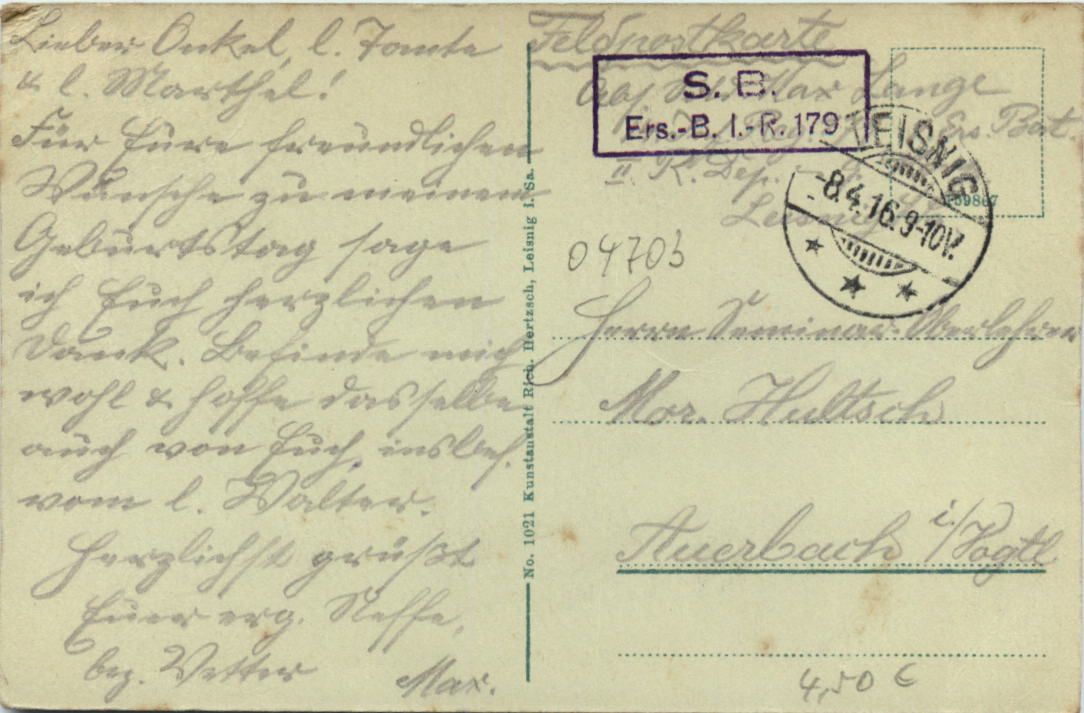 Lieber Onkel, l. Tante
& l. Marthel!
Für Eure freundlichen
Wünsche zu meinem
Geburtstag sage
ich Euch herzlichen
Dank. Befinde mich
wohl & hoffe dasselbe
auch von Euch, insbes.
vom l. Walter.
Herzlichst grüßt
Euer erg. Neffe,
bez. Vetter
Max.
No. 1021 Kunstanstalt Rich. Hertzsch, Leisnig i. Sa.
Feldpostkarte
Max Lange
Ers. Bat.
II. R. Dep.
Leisnig
S. B.
Ers.-B. I.-R. 179
LEISNIG
-8.4.16.9-10V.
04703
Herrn Seminar-Oberlehrer
Mor. Hultsch
Auerbach i./Vogtl
4,50 €